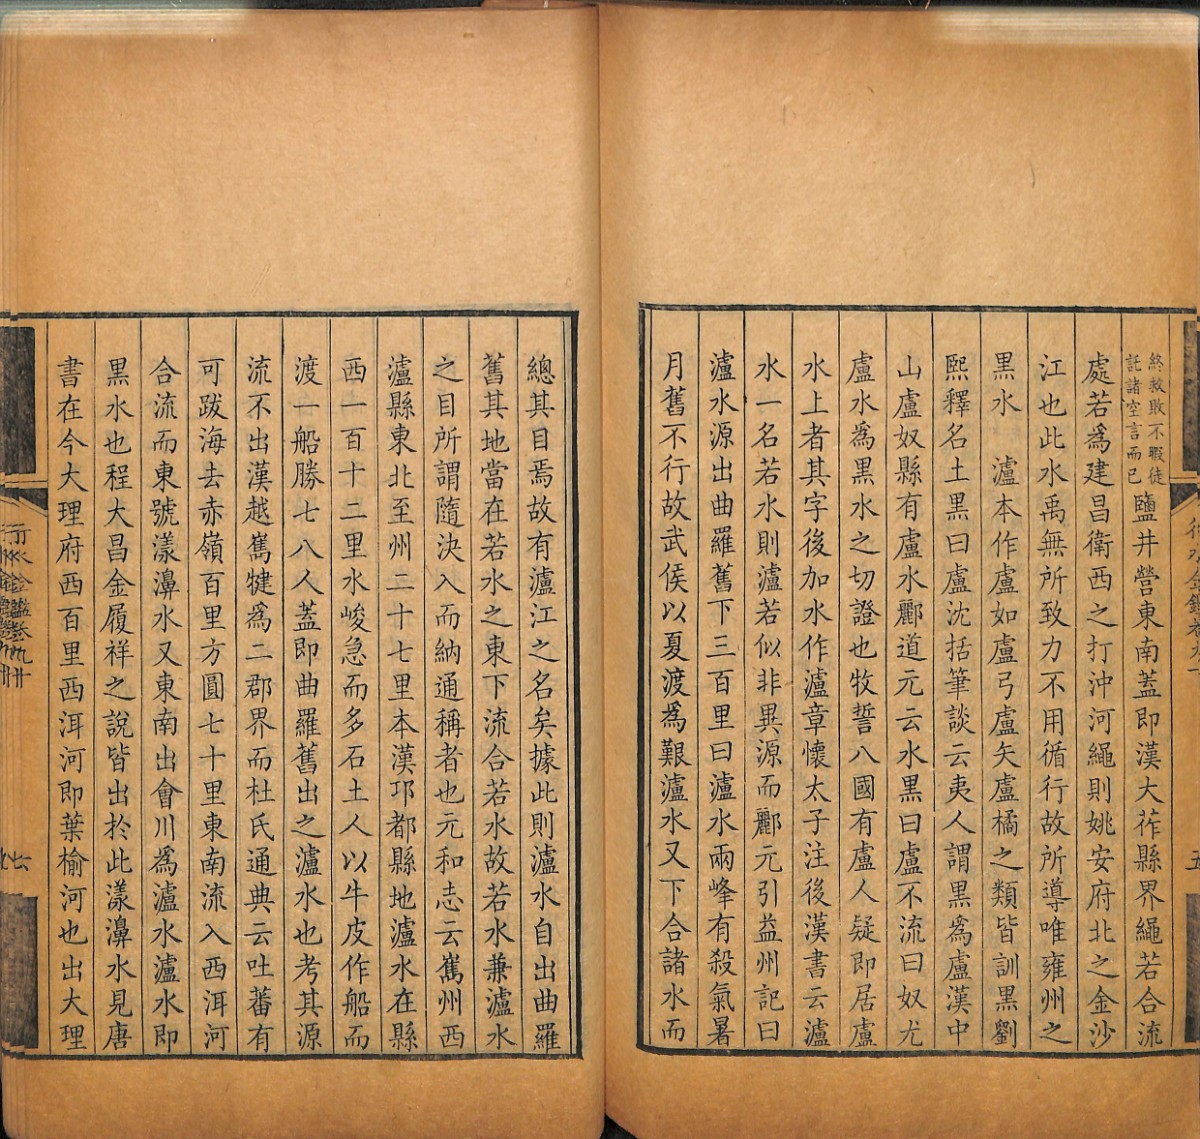 終救敗不暇徒
託諸空言而已
鹽井營東南蓋即漢大莋縣界繩若合流
處若爲建昌衛西之打沖河繩則姚安府北之金沙
江也此水禹無所致力不用循行故所導唯雍州之
黑水　瀘本作盧如盧弓盧矢盧橘之類皆訓黑劉
熙釋名土黑曰盧沈括筆談云夷人謂黑爲盧漢中
山盧奴縣有盧水酈道元云水黑曰盧不流曰奴尤
盧水爲黑水之切證也牧誓八國有盧人疑即居盧
水上者其字後加水作瀘章懷太子注後漢書云瀘
水一名若水則瀘若似非異源而酈元引益州記曰
瀘水源出曲羅舊下三百里曰瀘水兩峰有殺氣暑
月舊不行故武侯以夏渡爲艱瀘水又下合諸水而
總其目焉故有瀘江之名矣據此則瀘水自出曲羅
舊其地當在若水之東下流合若水故若水兼瀘水
之目所謂隨決入而納通稱者也元和志云嶲州西
瀘縣東北至州二十七里本漢邛都縣地瀘水在縣
西一百十二里水峻急而多石土人以牛皮作船而
渡一船勝七八人蓋即曲羅舊出之瀘水也考其源
流不出漢越嶲犍爲二郡界而杜氏通典云吐蕃有
可跋海去赤嶺百里方圓七十里東南流入西洱河
合流而東號漾濞水又東南出會川爲瀘水瀘水即
黑水也程大昌金履祥之說皆出於此漾濞水見唐
書在今大理府西百里西洱河即葉榆河也出大理